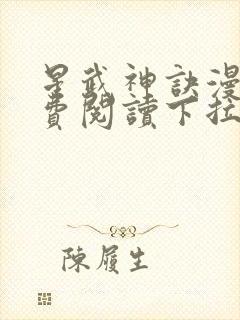 星武神訣漫
費閱讀下拉
陳履生